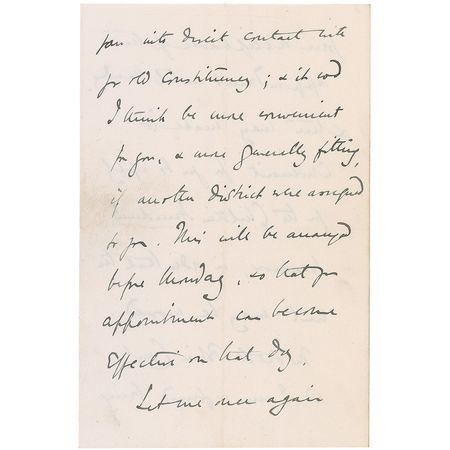 you into direct contact with
yr old Constituency; & it wd
I think be more convenient
for you, & more generally fitting,
if another district were assigned
to you. This will be arranged
before Monday, so that yr
appointment can become
effective on that Day.
Let me once again